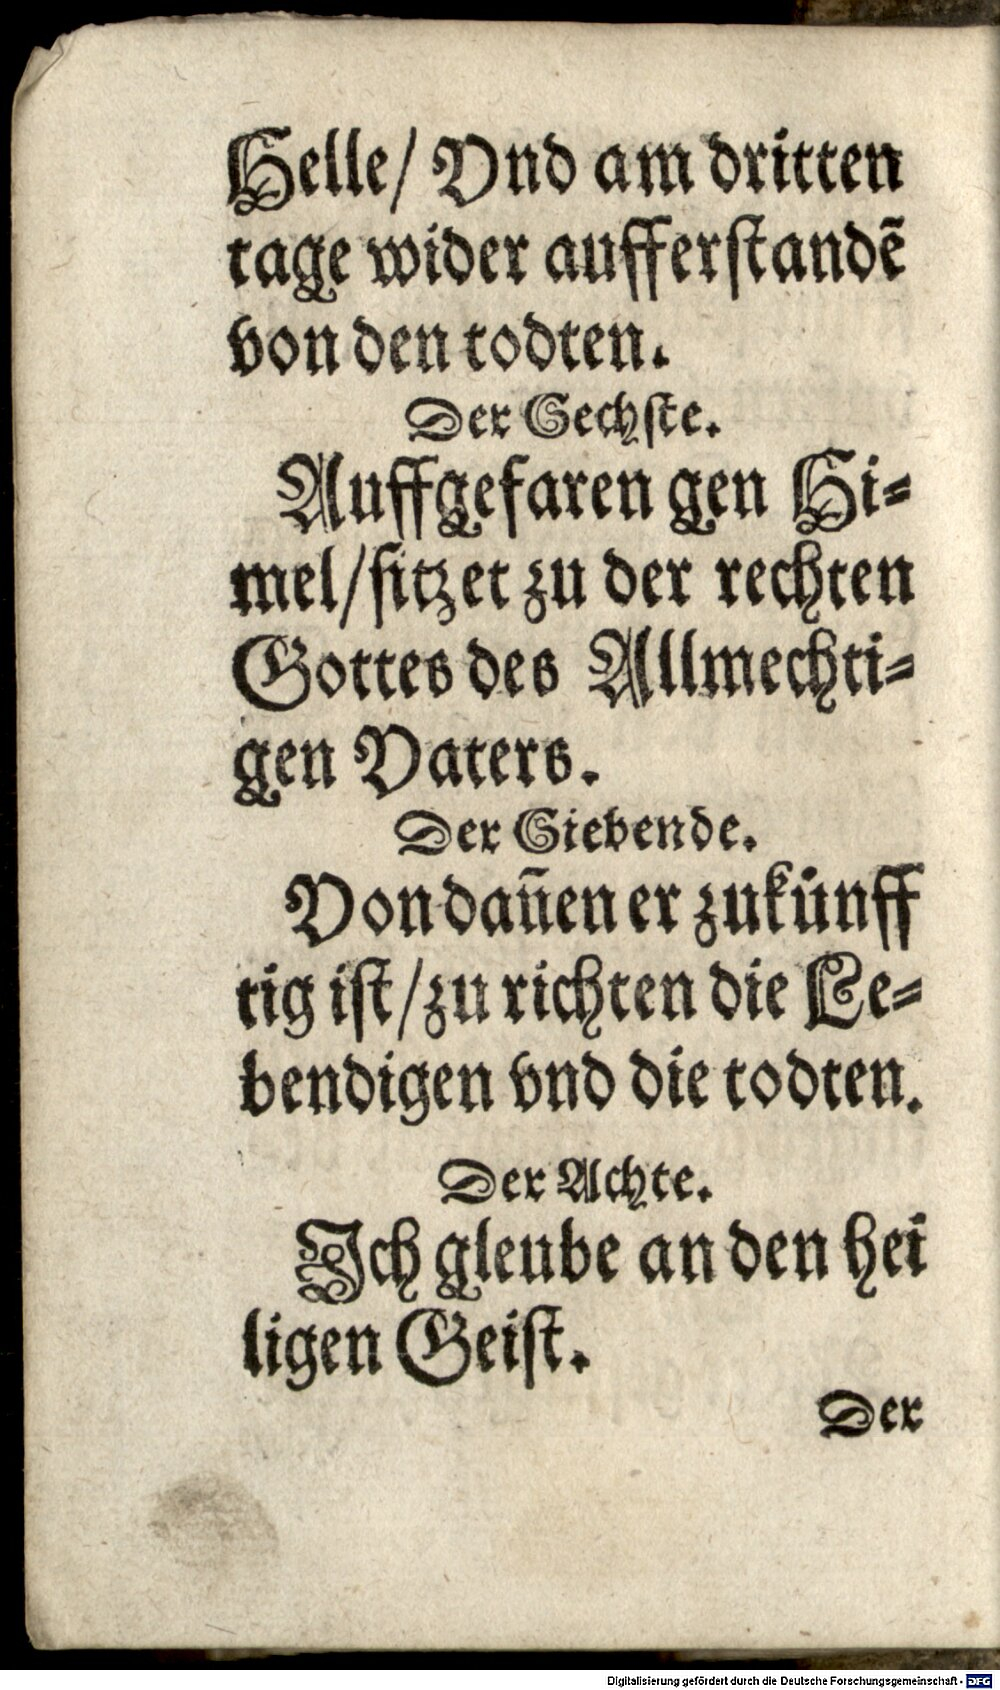 Helle/ Vnd am dritten
tage wider aufferstandẽ
von den todten.
Der Sechste.
Auffgefaren gen Hi-
mel/sitzet zu der rechten
Gottes des Allmechti-
gen Vaters.
Der Siebende.
Von dañen er zukünff
tig ist/zu richten die Le-
bendigen vnd die todten.
Der Achte.
Ich gleube an den hei
ligen Geist.
Der
Digitalisierung gefördert durch die Deutsche Forschungsgemeinschaft - DFG